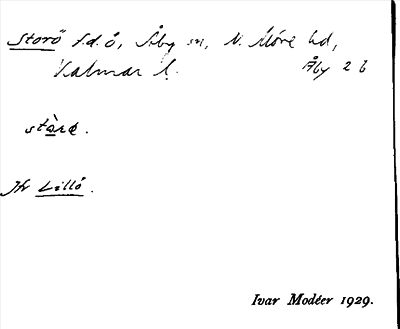 Storö f.d. ö, Åby sn, N. Möre hd,
Kalmar l. Åby 2 b
stårø.
Jfr Lillö.
Ivar Modéer 1929.